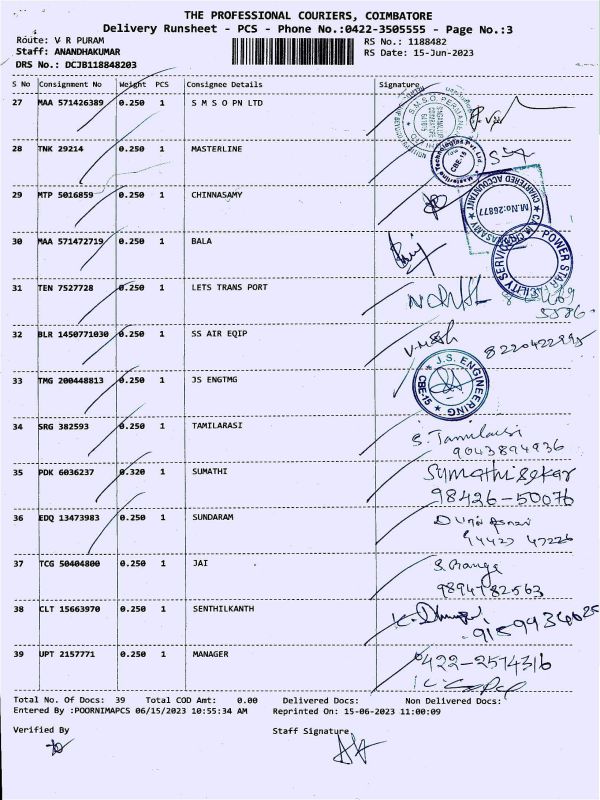 THE PROFESSIONAL COURIERS, COIMBATORE
Delivery Runsheet - PCS - Phone No.:0422-3505555 - Page No.:3
Route: V R PURAM RS No.: 1188482
Staff: ANANDHAKUMAR RS Date: 15-Jun-2023
DRS No.: DCJB118848203
S No Consignment No Weight PCS Consignee Details Signature
27 MAA 571426389 0.250 1 S M S O PN LTD
28 TNK 29214 0.250 1 MASTERLINE
29 MTP 5016859 0.250 1 CHINNASAMY
M.No:26877
CHARTERED ACCOUNTANT
30 MAA 571472719 0.250 1 BALA
POWER STAR
31 TEN 7527728 0.250 1 LETS TRANS PORT
32 BLR 1450771030 0.250 1 SS AIR EQIP
33 TMG 200448813 0.250 1 JS ENGTMG
J.S. ENGINEERING
CBE-15
34 SRG 382593 0.250 1 TAMILARASI
9043894936
35 PDK 6036237 0.320 1 SUMATHI Sumathisekar
98426-50076
36 EDQ 13473983 0.250 1 SUNDARAM
37 TCG 50404800 0.250 1 JAI
9894782563
38 CLT 15663970 0.250 1 SENTHILKANTH
39 UPT 2157771 0.250 1 MANAGER 0422-2574316
Total No. Of Docs: 39 Total COD Amt: 0.00 Delivered Docs: Non Delivered Docs:
Entered By :POORNIMAPCS 06/15/2023 10:55:34 AM Reprinted On: 15-06-2023 11:00:09
Verified By Staff Signature